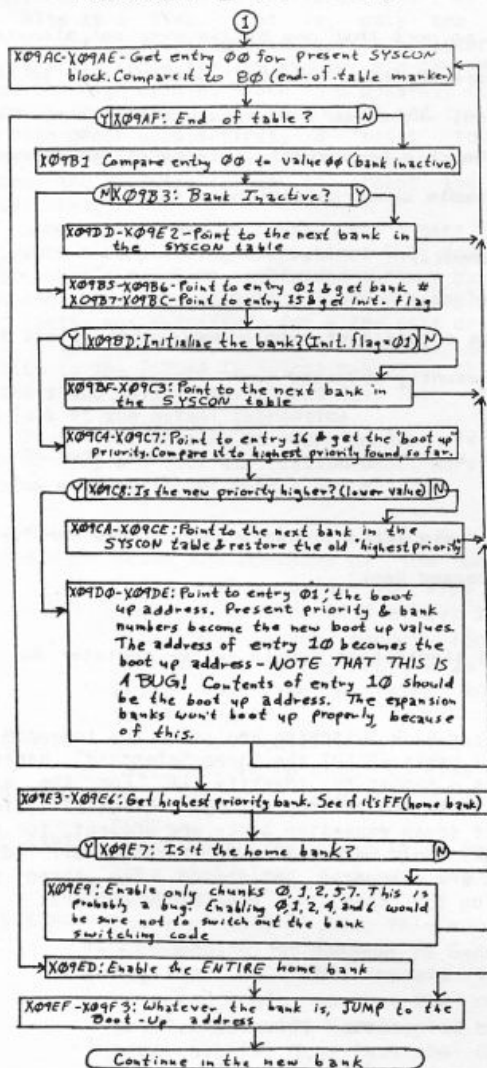 1
XØ9AC-XØ9AE-Get entry ØØ for present SYSCON
block. Compare it to 8Ø (end-of-table marker)
Y XØ9AF: End of table? N
XØ9B1 Compare entry ØØ to value ØØ (bank inactive)
N XØ9B3: Bank Inactive? Y
XØ9DD-XØ9E2-Point to the next bank in
the SYSCON table
XØ9B5-XØ9B6-Point to entry Ø1 & get bank #
XØ9B7-XØ9BC-Point to entry 15 & get init. flag
Y XØ9BD: Initialize the bank? (Init. flag=Ø1) N
XØ9BF-XØ9C3: Point to the next bank in
the SYSCON table
XØ9C4-XØ9C7: Point to entry 16 & get the "boot up"
Priority. Compare it to highest priority found, so far.
Y XØ9C8: Is the new priority higher? (lower value) N
XØ9CA-XØ9CE: Point to the next bank in the
SYSCON table & restore the old "highest priority"
XØ9DØ-XØ9DE: Point to entry Ø1, the boot
up address. Present priority & bank
numbers become the new boot up values.
The address of entry 1Ø becomes the
boot up address - NOTE THAT THIS IS
A BUG! Contents of entry 1Ø should
be the boot up address. The expansion
banks won't boot up properly because
of this.
XØ9E3-XØ9E6: Get highest priority bank. See if it's FF (home bank)
Y XØ9E7: Is it the home bank? N
XØ9E9: Enable only chunks Ø,1,2,5,7. This is
probably a bug. Enabling Ø,1,2,4, and 6 would
be sure not to switch out the bank
switching code
XØ9ED: Enable the ENTIRE home bank
XØ9EF-XØ9F3: Whatever the bank is, JUMP to the
Boot-Up address
Continue in the new bank